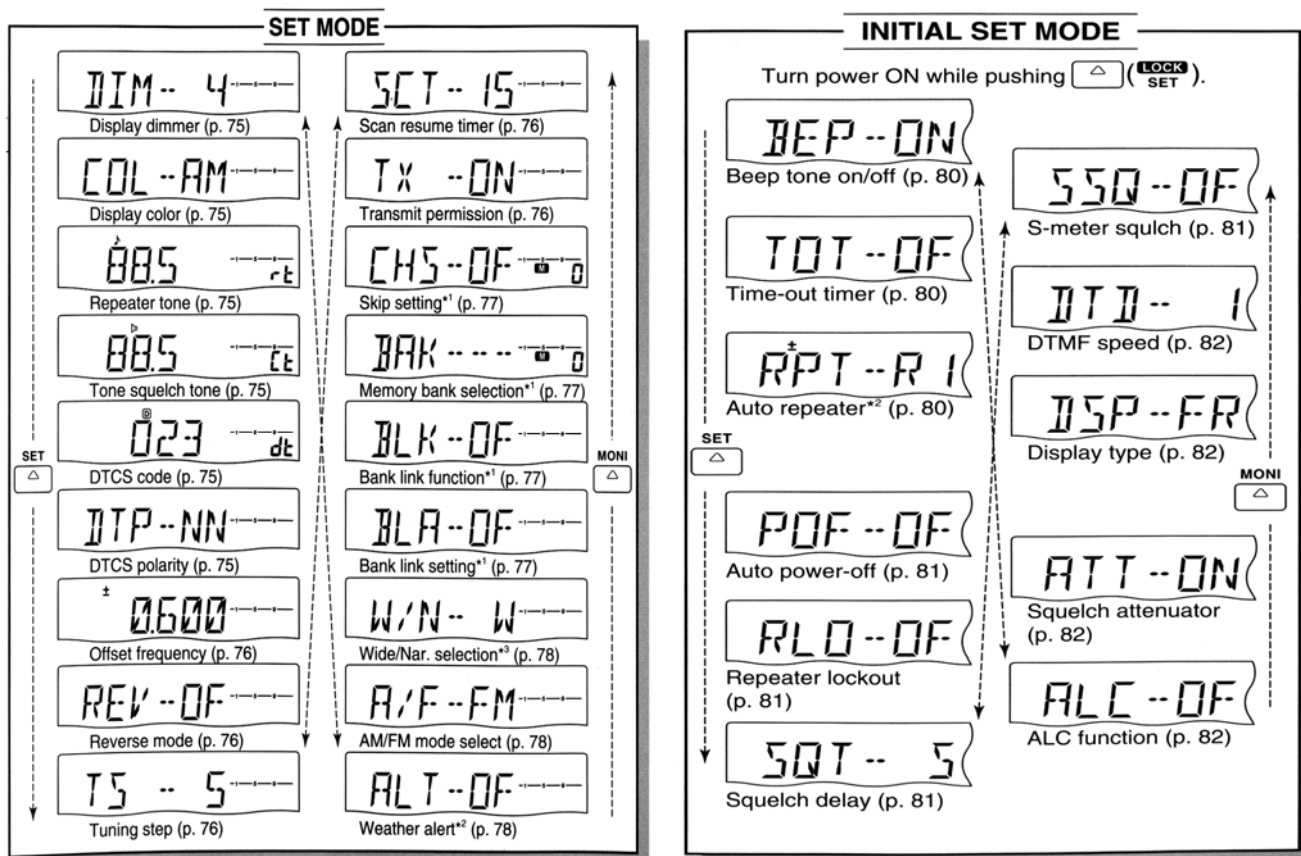 SET MODE
DIM-- 4
Display dimmer (p. 75)
COL--AM
Display color (p. 75)
88.5 rt
Repeater tone (p. 75)
88.5 Ct
Tone squelch tone (p. 75)
D
023 dt
DTCS code (p. 75)
DTP--NN
DTCS polarity (p. 75)
±
0.600
Offset frequency (p. 76)
REV--OF
Reverse mode (p. 76)
TS -- 5
Tuning step (p. 76)
SET
SCT-- 15
Scan resume timer (p. 76)
TX --ON
Transmit permission (p. 76)
CHS--OF M 0
Skip setting*1 (p. 77)
BAK---- M 0
Memory bank selection*1 (p. 77)
BLK--OF
Bank link function*1 (p. 77)
BLA--OF
Bank link setting*1 (p. 77)
W/N-- W
Wide/Nar. selection*3 (p. 78)
A/F--FM
AM/FM mode select (p. 78)
ALT--OF
Weather alert*2 (p. 78)
MONI
INITIAL SET MODE
Turn power ON while pushing (LOCK SET).
BEP--ON
Beep tone on/off (p. 80)
TOT--OF
Time-out timer (p. 80)
±
RPT--R1
Auto repeater*2 (p. 80)
SET
POF--OF
Auto power-off (p. 81)
RLO--OF
Repeater lockout
(p. 81)
SQT-- S
Squelch delay (p. 81)
SSQ--OF
S-meter squlch (p. 81)
DTD-- 1
DTMF speed (p. 82)
DSP--FR
Display type (p. 82)
MONI
ATT--ON
Squelch attenuator
(p. 82)
ALC--OF
ALC function (p. 82)